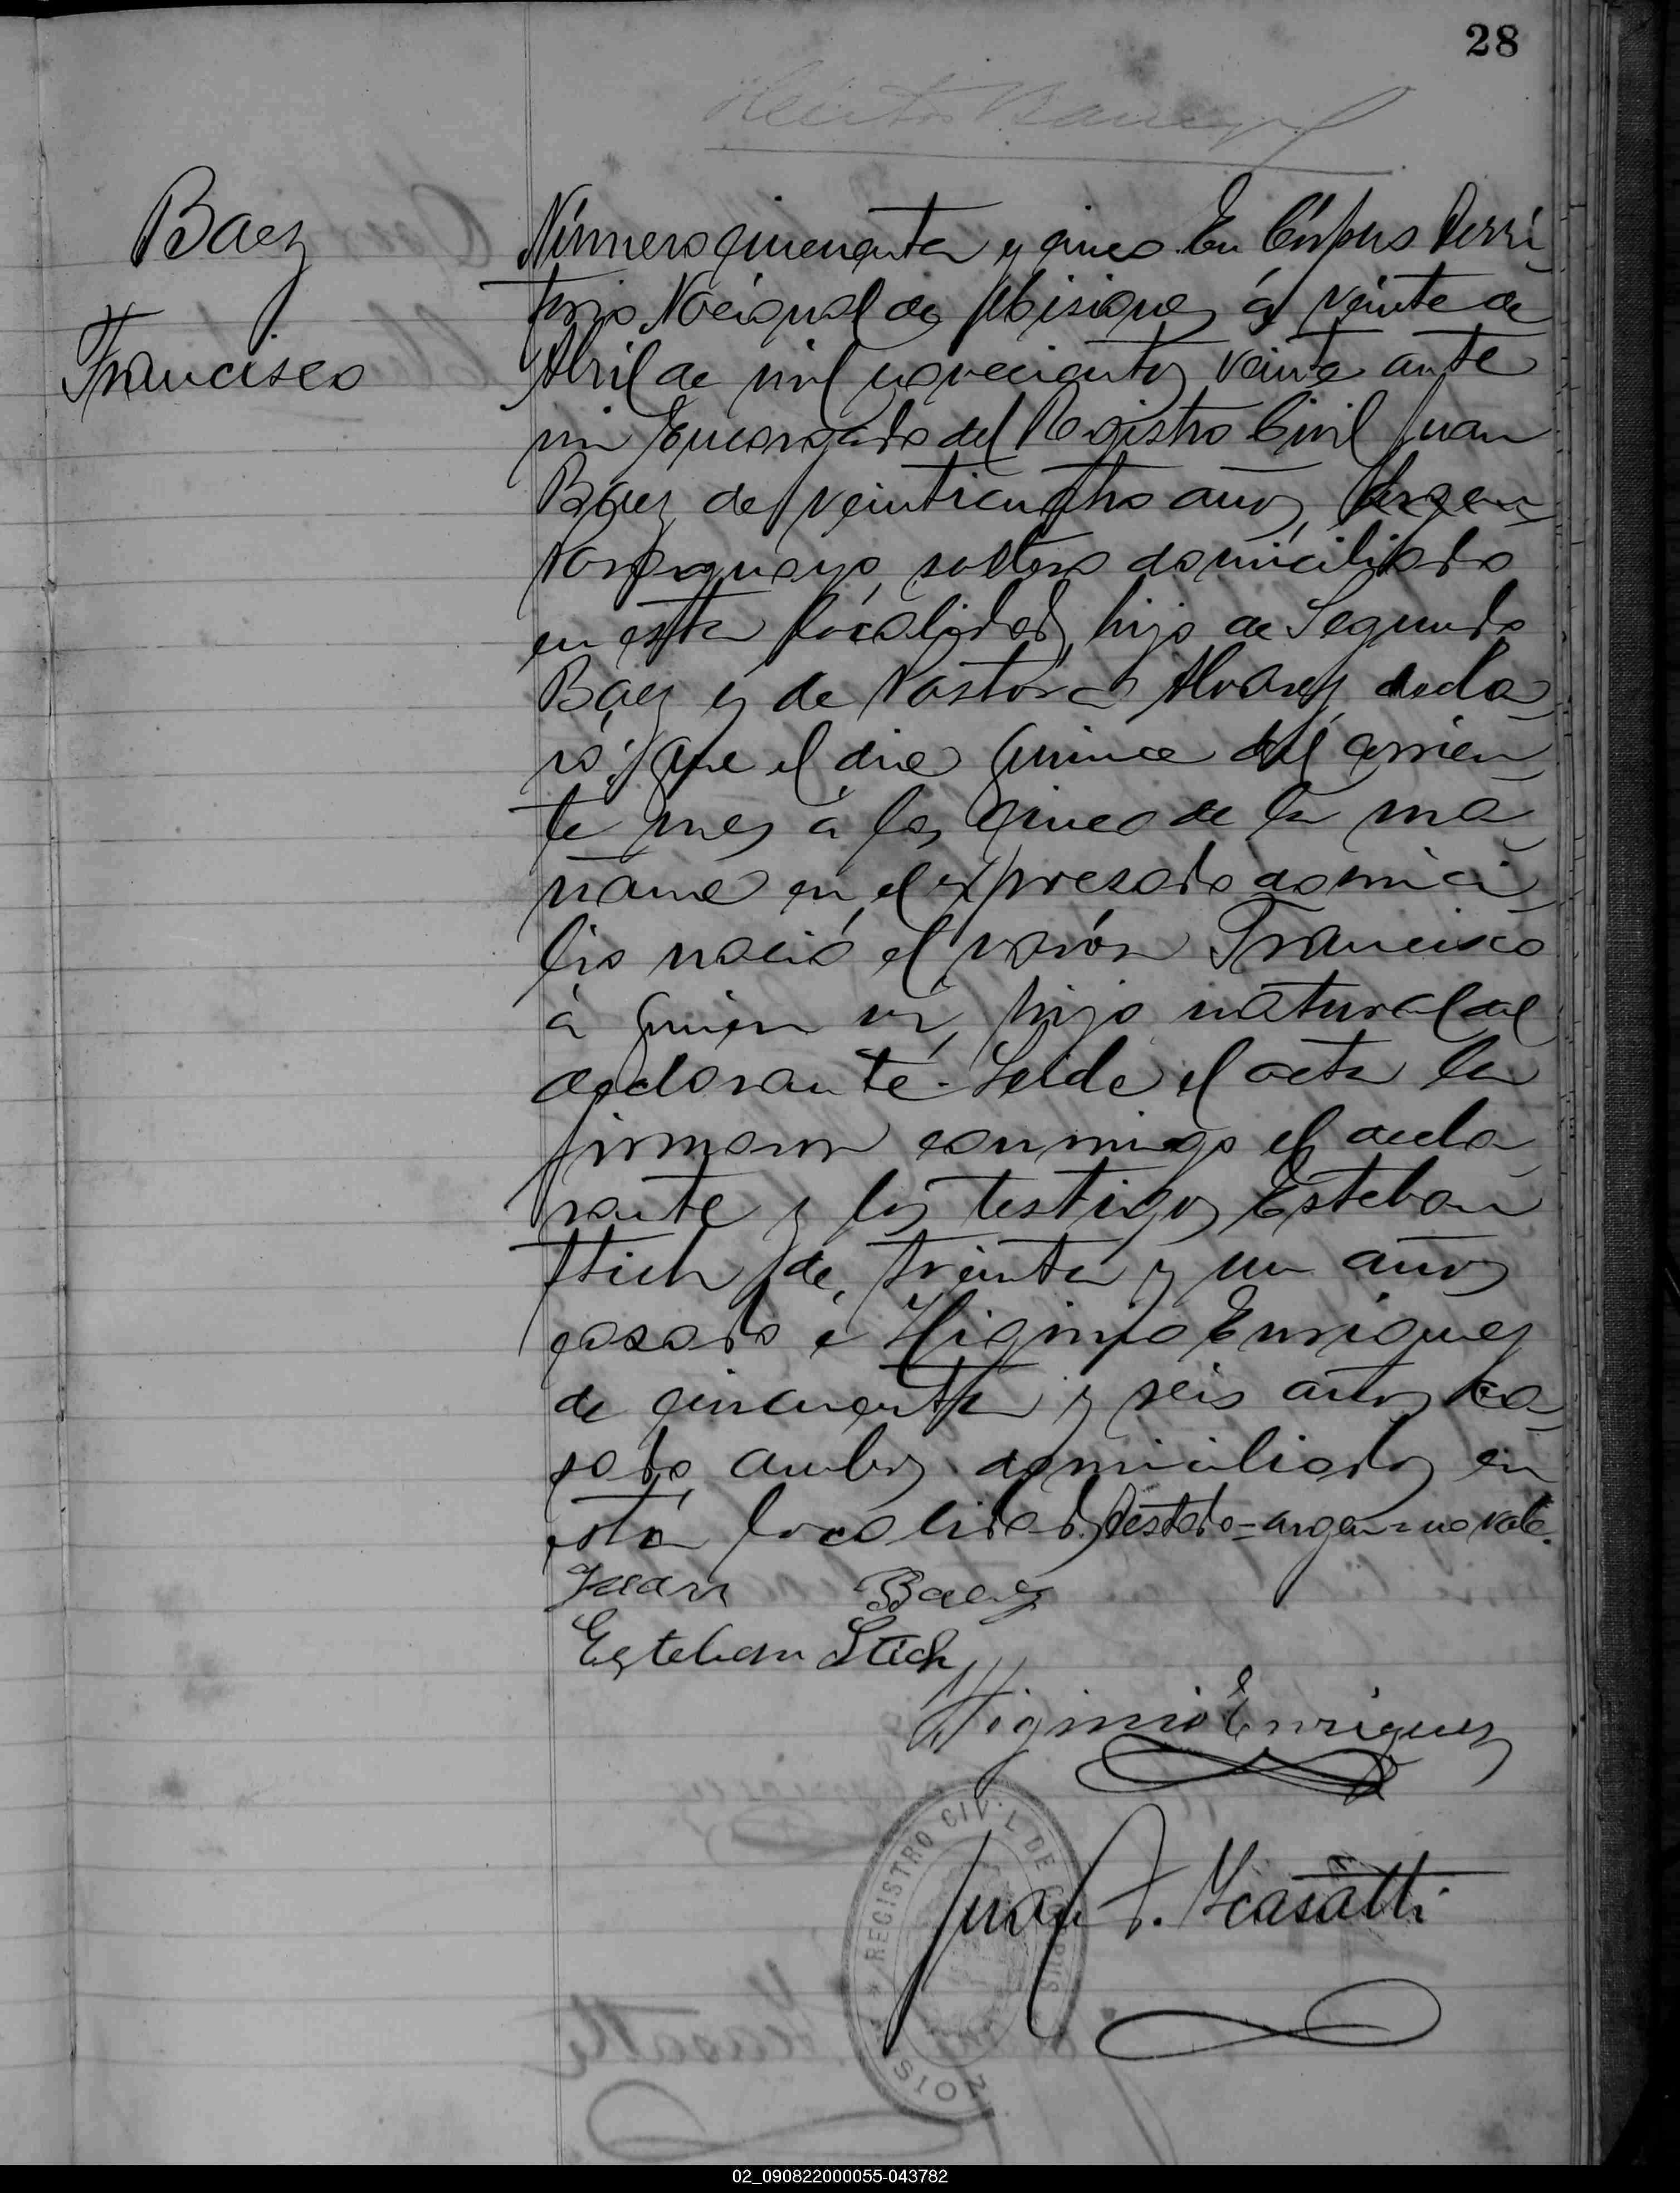 28
Baez
Francisco
Número cincuenta y cinco En Córpus Terri
torio Nacional de Misiones á veinte de
Abril de mil novecientos veinte ante
mi Encargado del Registro Civil Juan
Báez de veinticuatro años, Argen
Paraguayo, soltero domiciliado
en esta localidad, hijo de Segundo
Báez y de Pastora Alvarez decla
ró: que el dia quince del corrien
te mes á las cinco de la ma
ñana en el expresado domici
lio nació el varón Francisco
á quien vi, hijo natural del
declarante. Leida el acta la
firmaron conmigo el decla
rante y los testigos Esteban
Stich de treinta y un años
casado é Higinio Enriquez
de cincuenta y seis años ca
sado, ambos domiciliados en
esta localidad, Testado=argen=no vale.
Juan Baez
Esteban Stich
Higinio Enriquez
REGISTRO CIVIL DE CORPUS
MISIONES
Juan F.
02_090822000055-043782